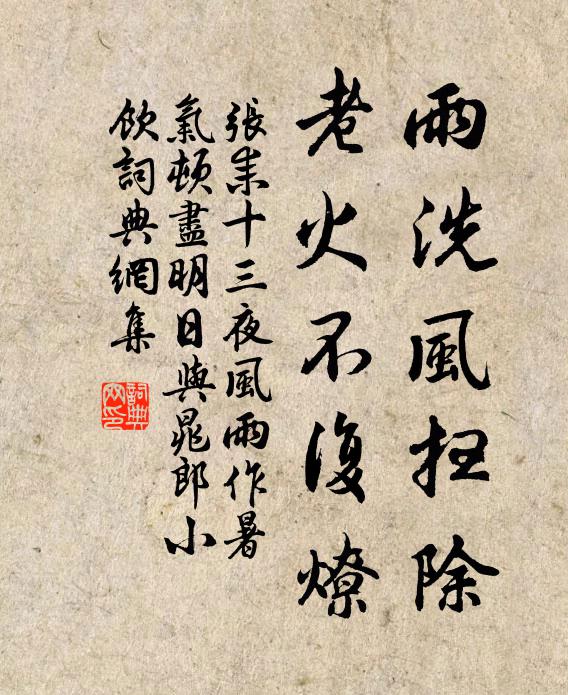 雨洗風掃除
老火不復燎
張耒十三夜風雨作暑
氣頓盡明日與晁郎小
飲詞典網集
詞典
网印